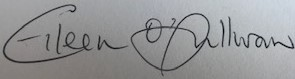 Eileen O'Sullivan